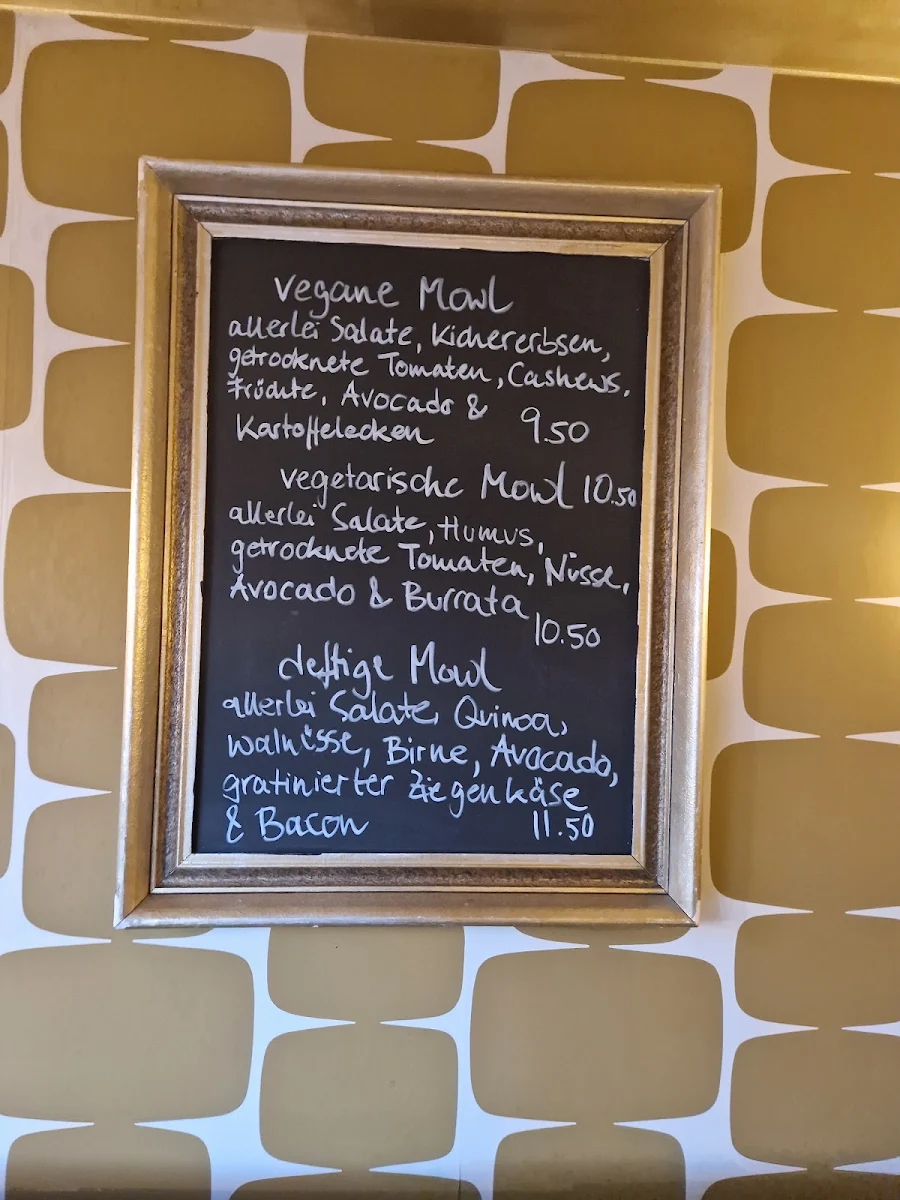 vegane Mowl
allerlei Salate, Kichererbsen,
getrocknete Tomaten, Cashews,
Früchte, Avocado &
Kartoffelecken 9.50
vegetarische Mowl 10.50
allerlei Salate, Humus,
getrocknete Tomaten, Nüsse,
Avocado & Burrata
10.50
deftige Mowl
allerlei Salate, Quinoa,
walnüsse, Birne, Avocado,
gratinierter Ziegenkäse
& Bacon 11.50